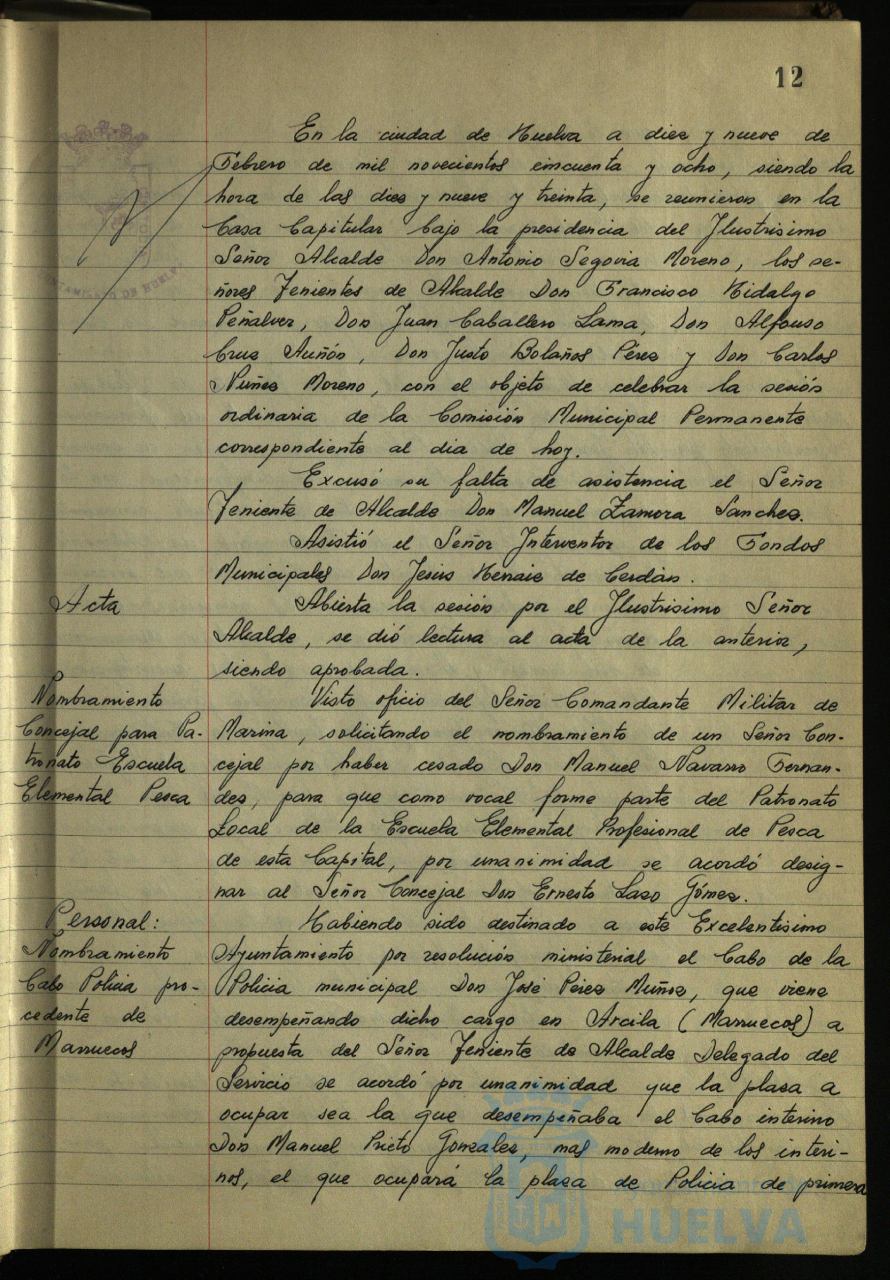 12
En la ciudad de Huelva a diez y nueve de
Febrero de mil novecientos cincuenta y ocho, siendo la
hora de las diez y nueve y treinta, se reunieron en la
Casa Capitular bajo la presidencia del Ilustrisimo
Señor Alcalde Don Antonio Segovia Moreno, los se-
ñores Tenientes de Alcalde Don Francisco Hidalgo
Peñalver, Don Juan Caballero Lama, Don Alfonso
Cruz Auñón, Don Justo Bolaños Pérez y Don Carlos
Nuñez Moreno, con el objeto de celebrar la sesión
ordinaria de la Comisión Municipal Permanente
correspondiente al dia de hoy.
Excusó su falta de asistencia el Señor
Teniente de Alcalde Don Manuel Zamora Sanchez.
Asistió el Señor Interventor de los Fondos
Municipales Don Jesús de Cerdán.
Acta
Abierta la sesión por el Ilustrisimo Señor
Alcalde, se dió lectura al acta de la anterior,
siendo aprobada.
Nombramiento
Concejal para Pa-
tronato Escuela
Elemental Pesca
Visto oficio del Señor Comandante Militar de
Marina, solicitando el nombramiento de un Señor Con-
cejal por haber cesado Don Manuel Navarro Fernan-
dez, para que como vocal forme parte del Patronato
Local de la Escuela Elemental Profesional de Pesca
de esta Capital, por unanimidad se acordó desig-
nar al Señor Concejal Don Ernesto Lazo Gómez.
Personal:
Nombramiento
Cabo Policia pro-
cedente de
Marruecos
Habiendo sido destinado a este Excelentisimo
Ayuntamiento por resolución ministerial el Cabo de la
Policia municipal Don José Pérez Muñoz, que viene
desempeñando dicho cargo en Arcila (Marruecos) a
propuesta del Señor Teniente de Alcalde Delegado del
Servicio se acordó por unanimidad que la plaza a
ocupar sea la que desempeñaba el Cabo interino
Don Manuel Prieto Gonzalez, mas moderno de los interi-
nos, el que ocupará la plaza de Policia de primera
HUELVA